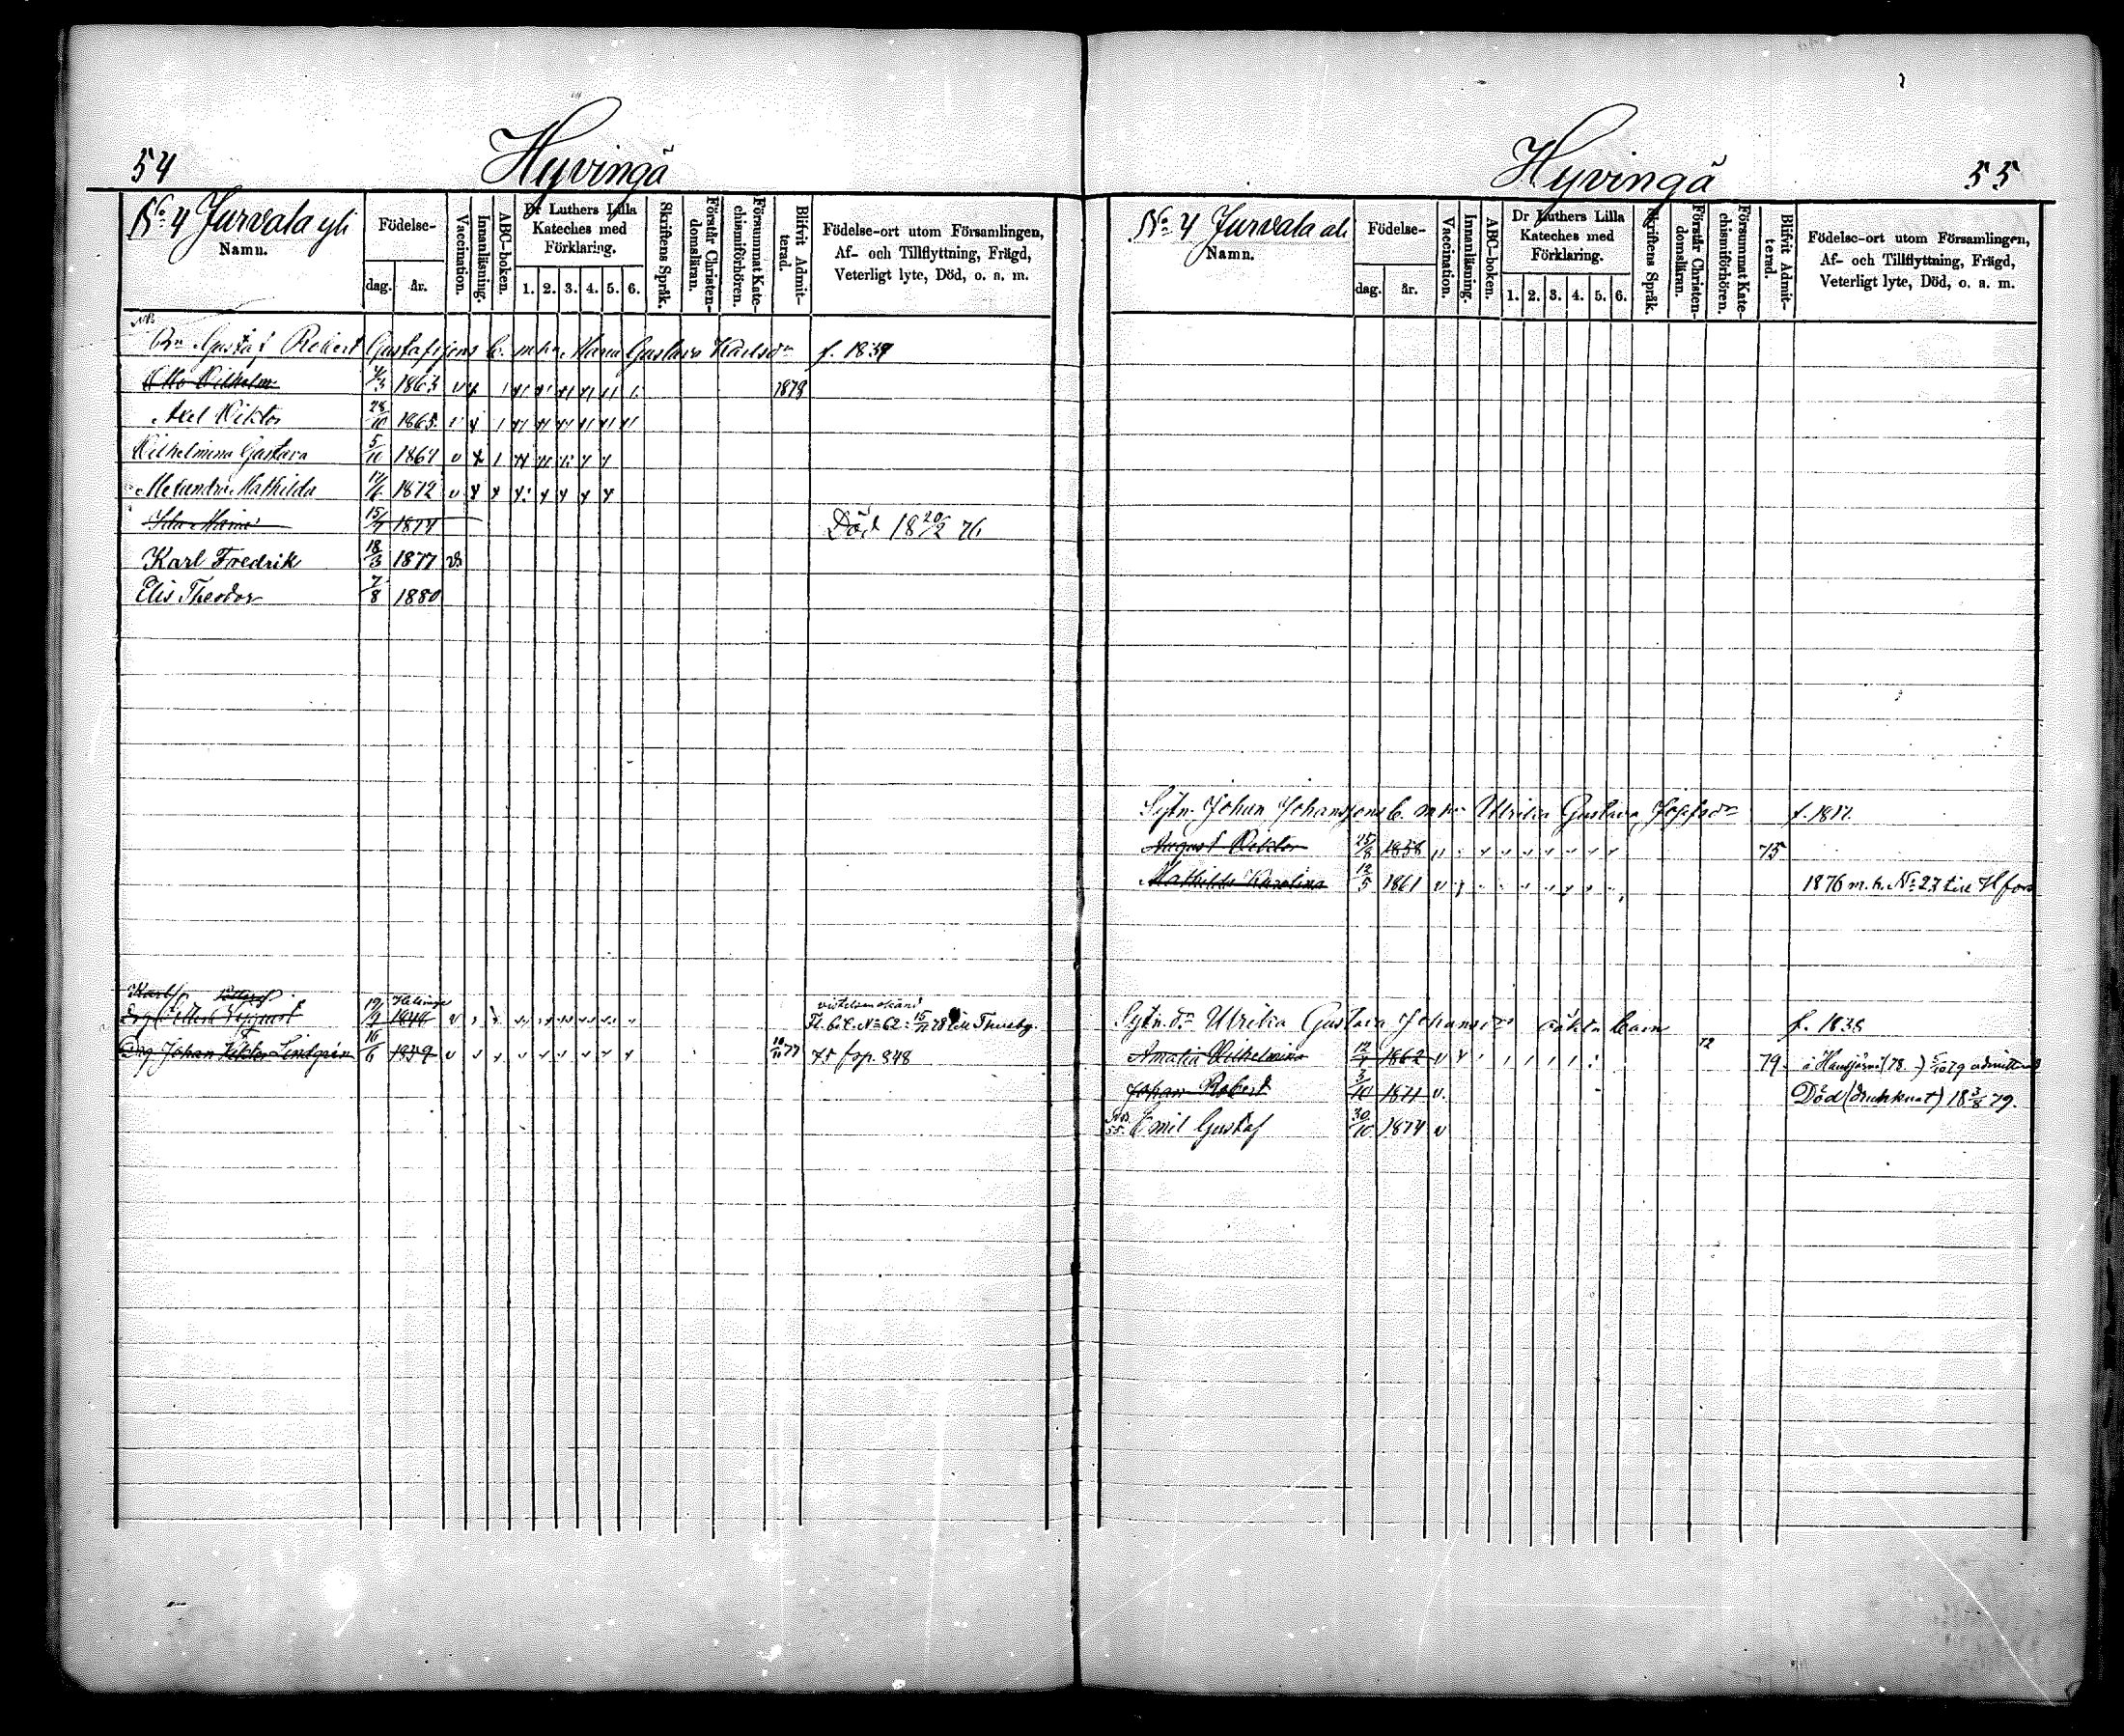 54
Hyvingä
No 4 Jurvala yli
Namn.
Födelse-
dag.
år.
Vaccination.
Innanläsning.
ABC-boken.
Dr Luthers Lilla
Kateches med
Förklaring.
1. 2. 3. 4. 5. 6.
Skriftens Språk.
Förstår Christen-
domsläran.
Försummat Kate-
chismiförhören.
Blifvit Admit-
terad.
Födelse-ort utom Församlingen,
Af- och Tillflyttning, Frägd,
Veterligt lyte, Död, o. a. m.
Gustaf Robert Gustafssons b. m. hu Maria Gustava Karlsdr f. 1839
Otto Wilhelm 1863 1878
Axel Viktor 28/10 1865
Wilhelmina Gustava 5/10 1867
Alexandra Mathilda 1872
Ida Maria 15/7 1874 Död 18 20/2 76
Karl Fredrik 18/3 1877 v
Elis Theodor 7/8 1880
19/9 v Fl. b. N:o 62 15/11 78 till Thusby.
Drg Johan Viktor Lindgrén 16/6 1859 10/11 77 75 f. p. 848
Hyvingä
55
No 4 Jurvala ali
Namn.
Födelse-
dag.
år.
Vaccination.
Innanläsning.
ABC-boken.
Dr Luthers Lilla
Kateches med
Förklaring.
1. 2. 3. 4. 5. 6.
Skriftens Språk.
Förstår Christen-
domsläran.
Försummat Kate-
chismiförhören.
Blifvit Admit-
terad.
Födelse-ort utom Församlingen,
Af- och Tillflyttning, Frägd,
Veterligt lyte, Död, o. a. m.
Sytn. Johan Johanssons b. m. hu Ulrika Gustava f. 1817
August Viktor 25/8 1858 75
Mathilda Karolina 12/5 1861 1876 m. b. N:o 27 till Hfors
Sytn. dr Ulrika Gustava Johansdr oäkta barn f. 1838
Amalia Wilhelmina 1862 72 79 i Hausjärvi (78.) admitterad
Johan Robert 3/10 1871 v. Död (drunknat) 18 3/8 79.
Emil Gustaf 30/10 1874 v